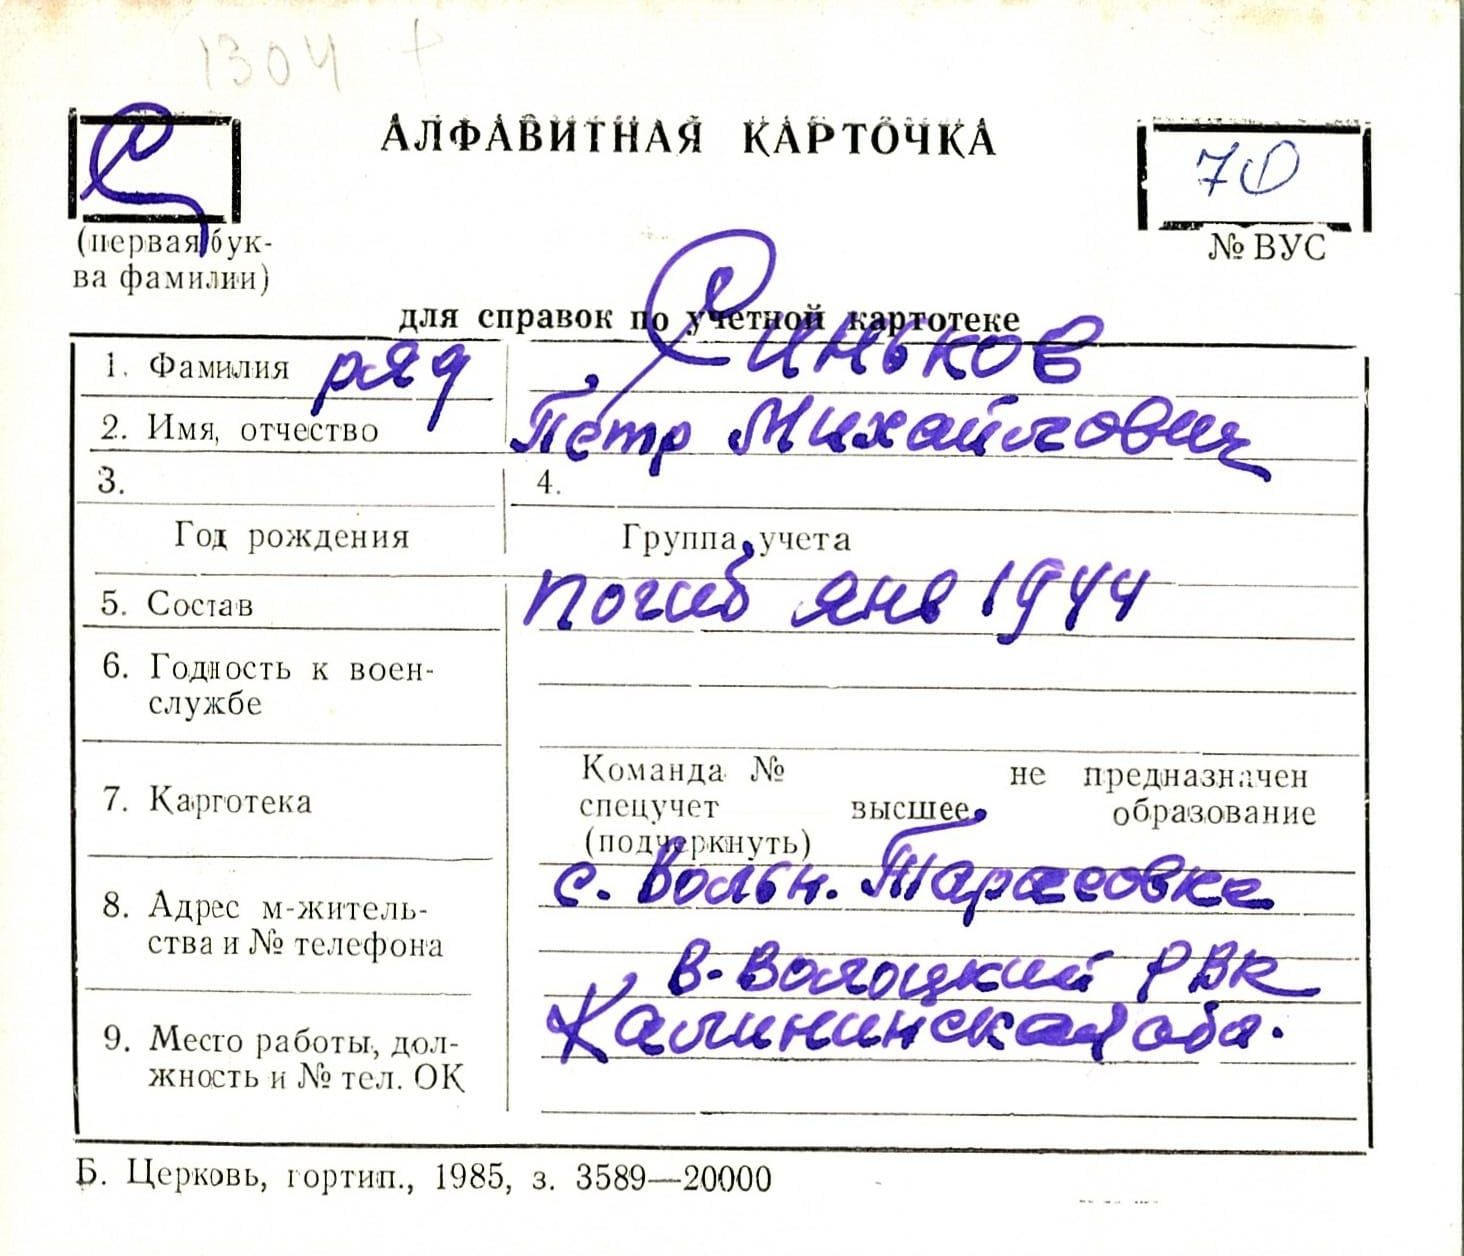 1304 +
С АЛФАВИТНАЯ КАРТОЧКА 70
(первая бук-
ва фамилии)
№ ВУС
для справок по учетной картотеке
1. Фамилия ряд Синьков
2. Имя, отчество Пётр Михайлович
3. 4.
Год рождения Группа учета
5. Состав погиб янв 1944
6. Годность к воен-
службе
7. Картотека
Команда № не предназначен
спецучет высшее образование
(подчеркнуть)
8. Адрес м-житель-
ства и № телефона
с. Вольн. Тарасовка
В-Волоцкий РВК
Калининская обл.
9. Место работы, дол-
жность и № тел. ОК
Б. Церковь, гортип., 1985, з. 3589—20000